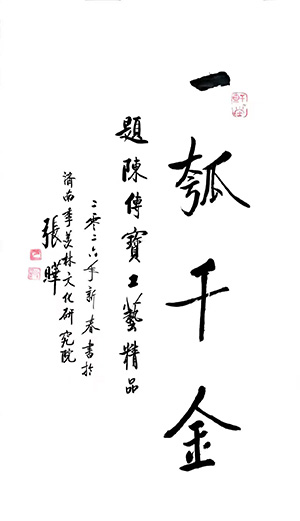 一瓠千金
題陳傳寶工藝精品
二零二六年新春書於
濟南季羨林文化研究院
張曄